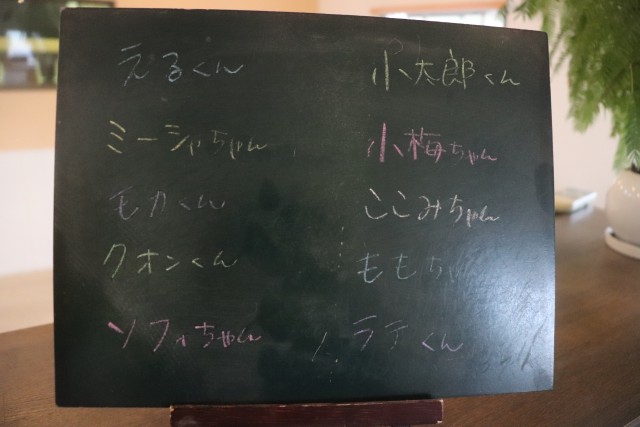 えるくん
ミーシャちゃん
モカくん
クオンくん
ソフィちゃん
小太郎くん
小梅ちゃん
ここみちゃん
ももちゃ
ラテくん